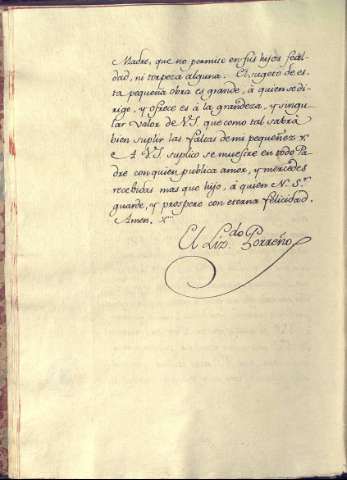 Madre, que no permite en sus hijos feal-
dad, ni torpeza alguna. El sugeto de es-
ta pequeña obra es grande, á quien se di-
rige, y ofrece es á la grandeza, y singu-
lar valor de V.S. que como tal sabrá
bien suplir las faltas de mi pequeñez y
A V.S. suplico se muestre en todo Pa-
dre con quien publica amor, y mercedes
recebidas mas que hijo, á quien N. S.or
guarde, y prospere con eterna felicidad.
Amen.
El Liz.do Porreño